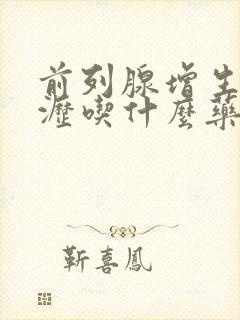 前列腺增生
瀝喫什麼藥
靳喜鳳